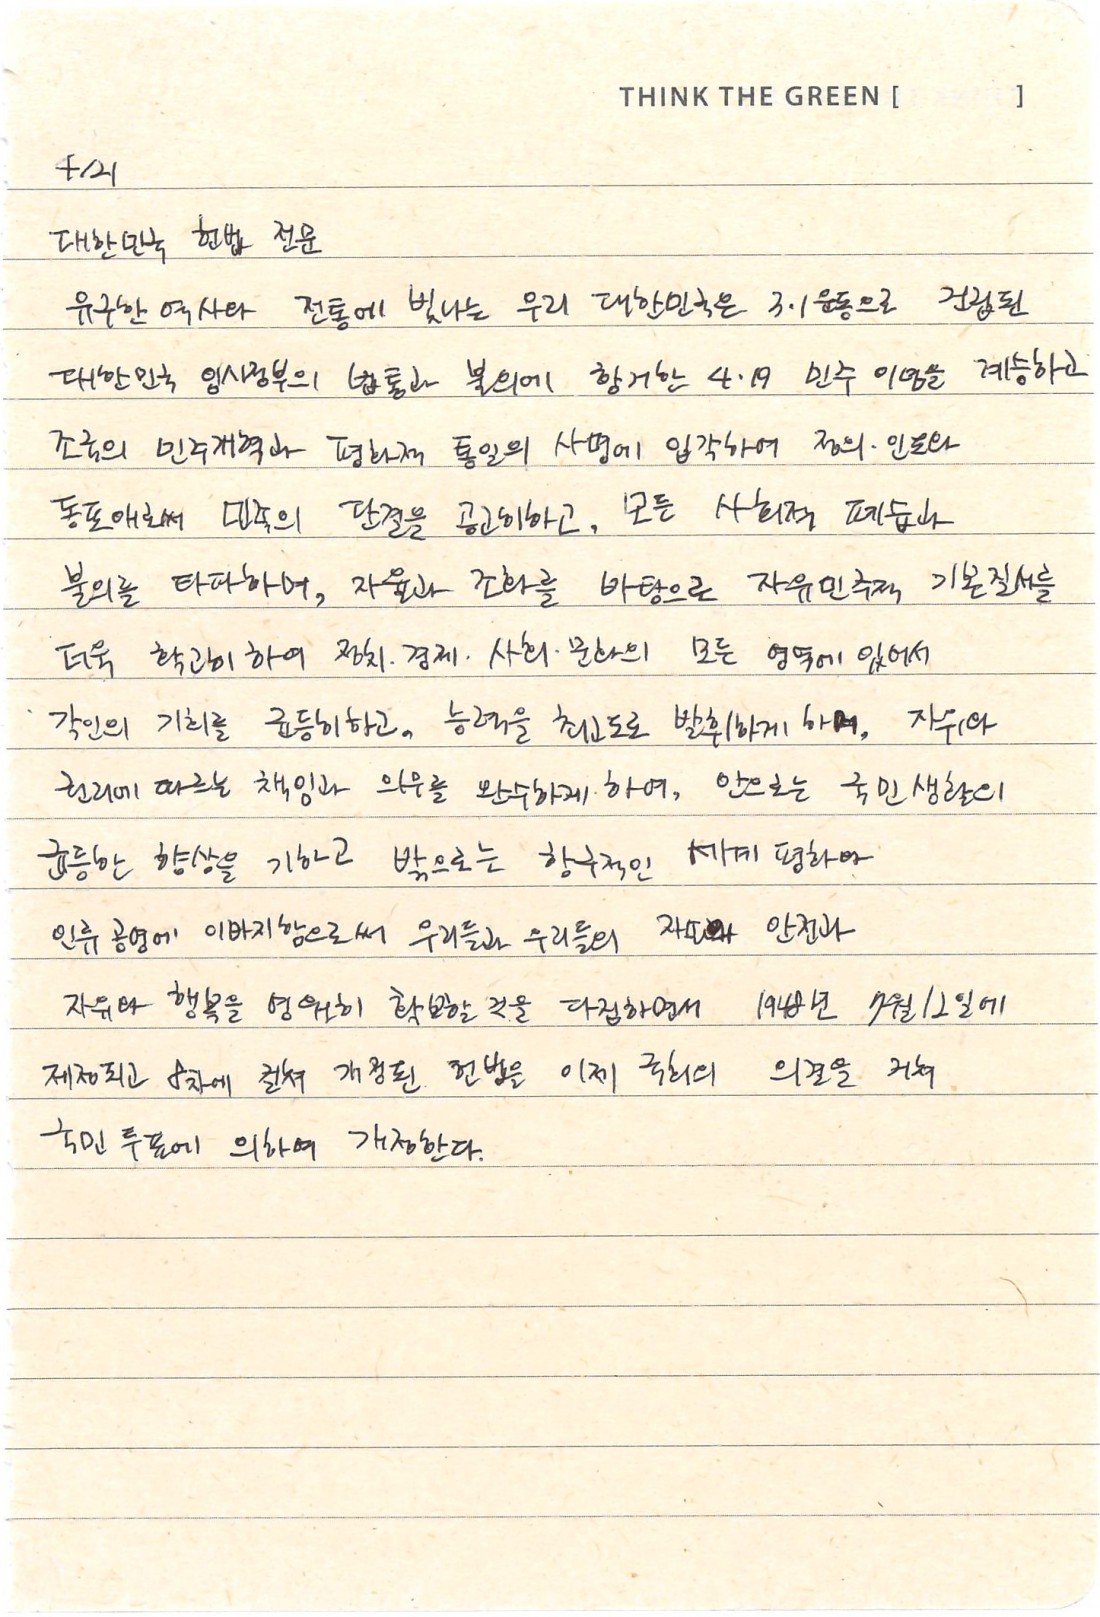 THINK THE GREEN [ ]
4/21
대한민국 헌법 전문
유구한 역사와 전통에 빛나는 우리 대한민국은 3·1운동으로 건립된
대한민국 임시정부의 법통과 불의에 항거한 4·19 민주 이념을 계승하고
조국의 민주개혁과 평화적 통일의 사명에 입각하여 정의·인도와
동포애로써 민족의 단결을 공고히하고, 모든 사회적 폐습과
불의를 타파하며, 자율과 조화를 바탕으로 자유민주적 기본질서를
더욱 확고히 하여 정치·경제·사회·문화의 모든 영역에 있어서
각인의 기회를 균등히하고, 능력을 최고도로 발휘하게 하며, 자유와
권리에 따르는 책임과 의무를 완수하게 하여, 안으로는 국민 생활의
균등한 향상을 기하고 밖으로는 항구적인 세계 평화와
인류 공영에 이바지함으로써 우리들과 우리들의 안전과
자유와 행복을 영원히 확보할 것을 다짐하면서 1948년 7월 12일에
제정되고 8차에 걸쳐 개정된 헌법을 이제 국회의 의결을 거쳐
국민 투표에 의하여 개정한다.